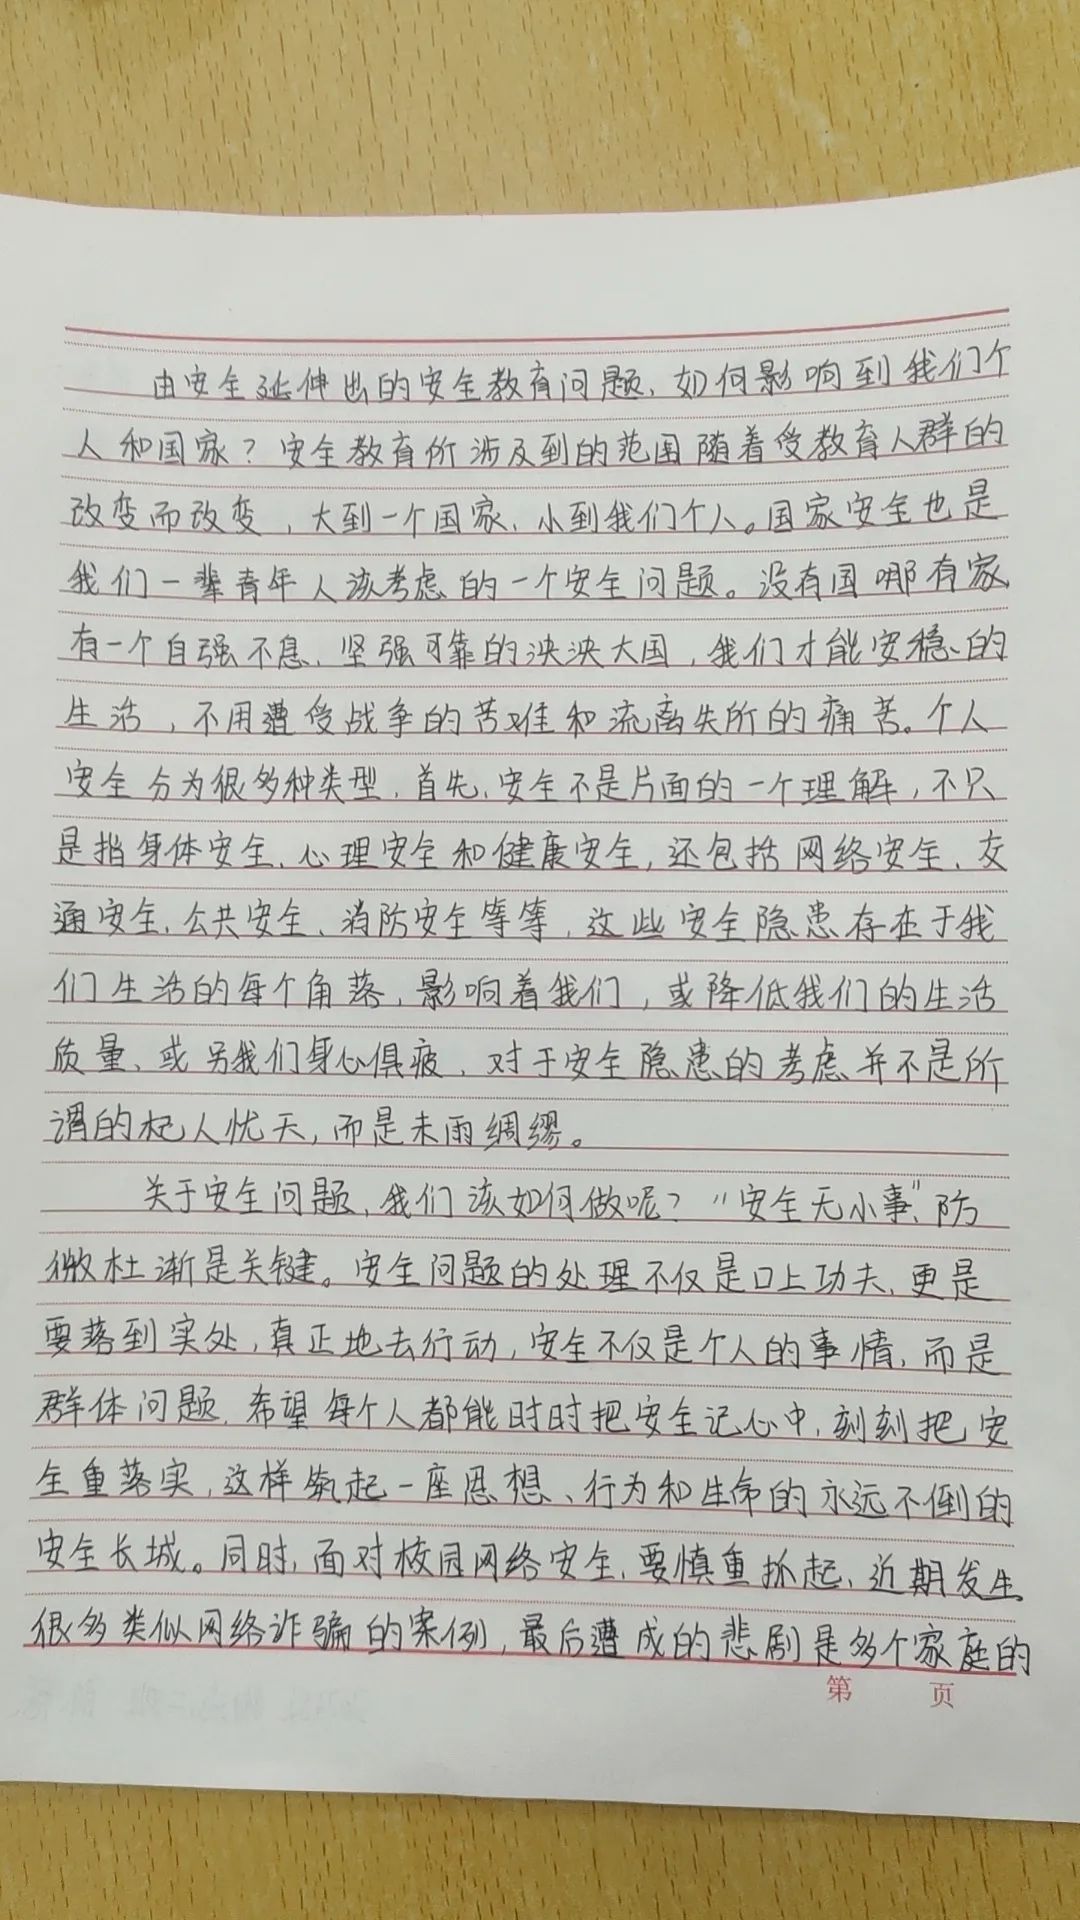 由安全延伸出的安全教育问题,如何影响到我们个
人和国家?安全教育所涉及到的范围随着受教育人群的
改变而改变,大到一个国家,小到我们个人。国家安全也是
我们一辈青年人该考虑的一个安全问题。没有国哪有家
有一个自强不息、坚强可靠的泱泱大国,我们才能安稳的
生活,不用遭受战争的苦难和流离失所的痛苦。个人
安全分为很多种类型,首先,安全不是片面的一个理解,不只
是指身体安全、心理安全和健康安全,还包括网络安全、交
通安全、公共安全、消防安全等等,这些安全隐患存在于我
们生活的每个角落,影响着我们,或降低我们的生活
质量、或另我们身心俱疲,对于安全隐患的考虑并不是所
谓的杞人忧天,而是未雨绸缪。
关于安全问题,我们该如何做呢?“安全无小事”,防
微杜渐是关键。安全问题的处理不仅是口上功夫,更是
要落到实处,真正地去行动,安全不仅是个人的事情,而是
群体问题,希望每个人都能时时把安全记心中,刻刻把安
全重落实,这样筑起一座思想、行为和生命的永远不倒的
安全长城。同时,面对校园网络安全,要慎重抓起,近期发生
很多类似网络诈骗的案例,最后遭成的悲剧是多个家庭的
第 页